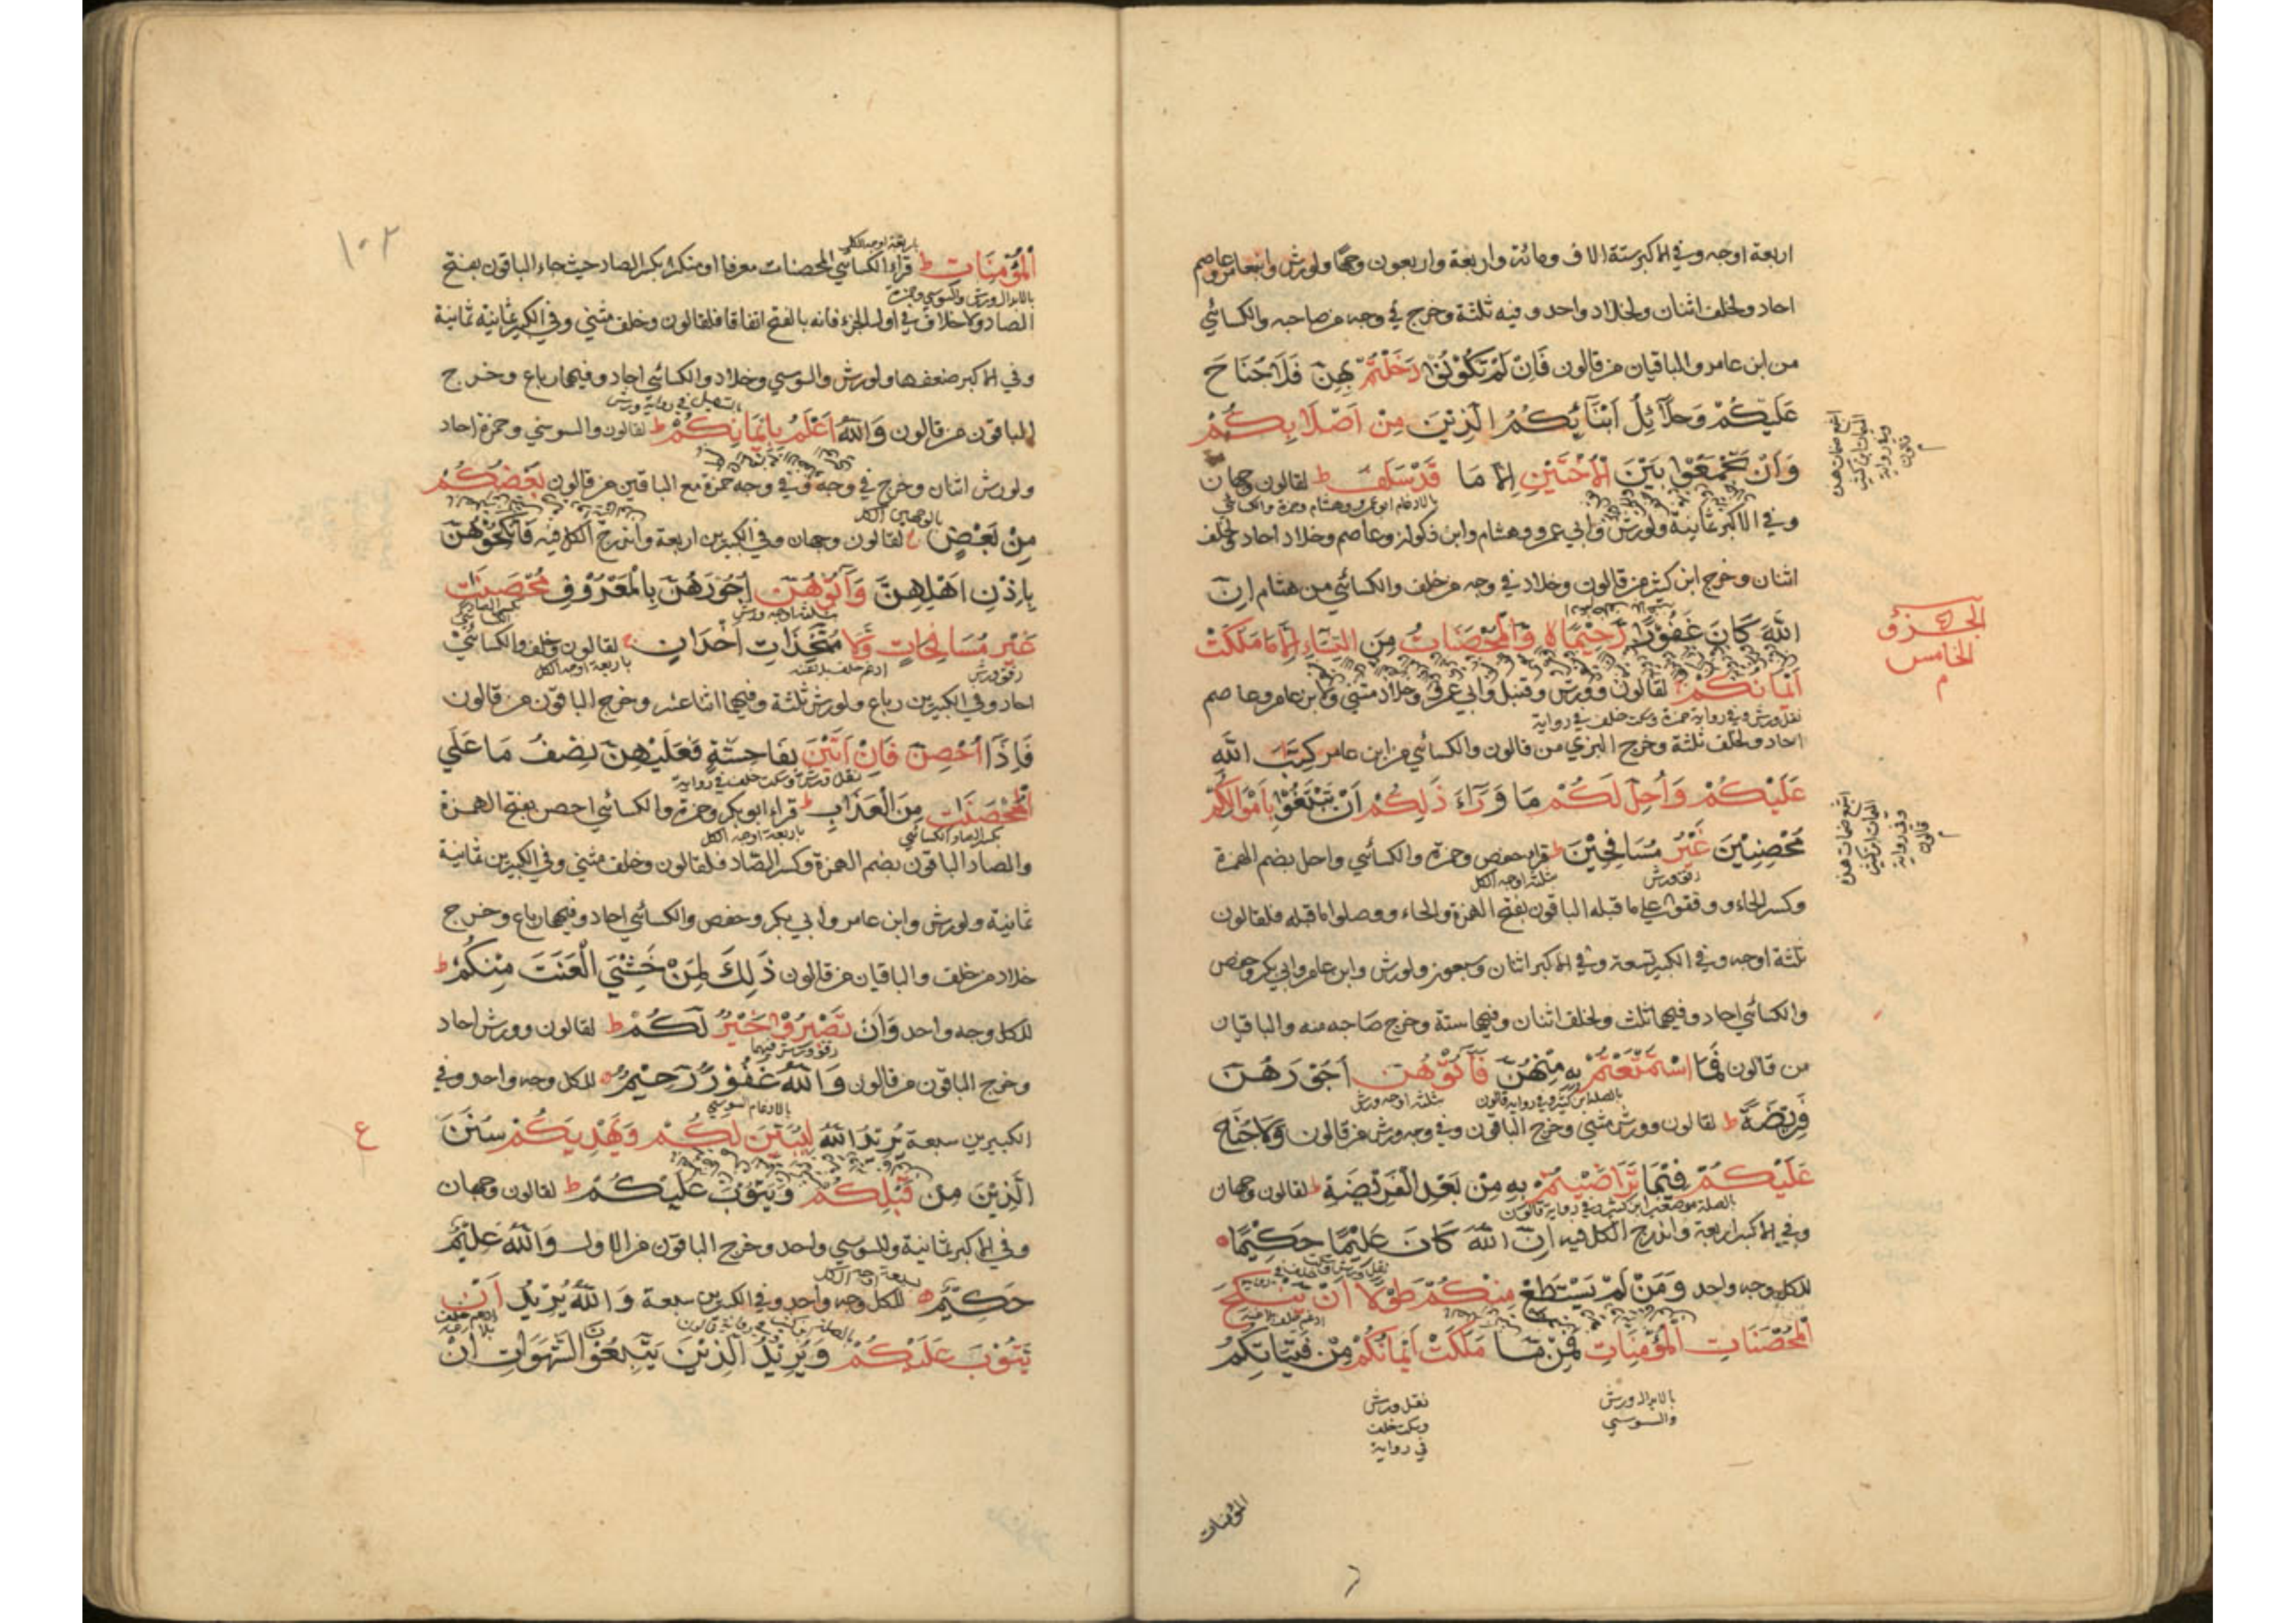 اربعة اوجه وفي الاكبر ستة الاف ومائة واربعة واربعون وجها ولورش وابن عامر وعاصم
احاد ولخلف اثنان ولخلاد واحد وفيه ثلثة وخرج في وجه من صاحبه والكسائي
من ابن عامر والباقيان من قالون فَاِنْ لَمْ تَكُوْنُوْا دَخَلْتُمْ بِهِنَّ فَلَا جُنَاحَ
عَلَيْكُمْ وَحَلَآئِلُ اَبْنَآئِكُمُ الَّذِيْنَ مِنْ اَصْلَابِكُمْ
وَاَنْ تَجْمَعُوْا بَيْنَ الْاُخْتَيْنِ اِلَّا مَا قَدْ سَلَفَ ط لقالون وجهان
بالادغام ابو عمرو وهشام وحمزة والكسائي
وفي الاكبر ثمانية ولورش وابي عمرو وهشام وابن ذكوان وعاصم وخلاد احاد ولخلف
اثنان وخرج ابن كثير من قالون وخلاد في وجه من خلف والكسائي من هشام اِنَّ
اللّٰهَ كَانَ غَفُوْرًا رَّحِيْمًا ه وَّالْمُحْصَنَاتُ مِنَ النِّسَآءِ اِلَّا مَا مَلَكَتْ
الجزؤ
الخامس
م
اَيْمَانُكُمْ لقالون وورش وقنبل وابي عمرو وخلاد مثنى ولابن عامر وعاصم
نقل ورش وفي رواية حمزة وسكت خلف في رواية
احاد ولخلف ثلثة وخرج البزي من قالون والكسائي من ابن عامر كِتٰبَ اللّٰهِ
عَلَيْكُمْ وَاُحِلَّ لَكُمْ مَا وَرَآءَ ذٰلِكُمْ اَنْ تَبْتَغُوْا بِاَمْوَالِكُمْ
مُحْصِنِيْنَ غَيْرَ مُسَافِحِيْنَ ط قراء حفص وحمزة والكسائي واحل بضم الهمزة
رقق ورش
بثلثة اوجه الكل
وكسر الحاء ووقفوا على ما قبله الباقون بفتح الهمزة والحاء ووصلوا ما قبله فلقالون
ثلثة اوجه وفي الكبير تسعة وفي الاكبر اثنان وسبعون ولورش وابن عامر وابي بكر وحفص
والكسائي احاد وفيهما ثلث ولخلف اثنان وفيهما ستة وخرج صاحبه منه والباقيان
من قالون فَمَا اسْتَمْتَعْتُمْ بِهٖ مِنْهُنَّ فَاٰتُوْهُنَّ اُجُوْرَهُنَّ
بالصلة ابن كثير وفي رواية قالون
بثلثة اوجه ورش
فَرِيْضَةً ط لقالون وورش مثنى وخرج الباقون وفي وجه ورش من قالون وَلَا جُنَاحَ
عَلَيْكُمْ فِيْمَا تَرَاضَيْتُمْ بِهٖ مِنْ بَعْدِ الْفَرِيْضَةِ ط لقالون وجهان
وفي الاكبر اربعة واندرج الكل فيه اِنَّ اللّٰهَ كَانَ عَلِيْمًا حَكِيْمًا ه
للكل وجه واحد وَمَنْ لَمْ يَسْتَطِعْ مِنْكُمْ طَوْلًا اَنْ يَنْكِحَ
الْمُحْصَنَاتِ الْمُؤْمِنَاتِ فَمِنْ مَا مَلَكَتْ اَيْمَانُكُمْ مِنْ فَتَيَاتِكُمُ
بالابدال ورش
والسوسي
نقل ورش
وسكت خلف
في رواية
المؤمنات
١٠٢
باربعة اوجه الكل
الْمُؤْمِنَاتِ ط قراء الكسائي المحصنات معرفا او منكرا بكسر الصاد حيث جاء الباقون بفتح
بالابدال ورش والسوسي وحمزة
الصاد ولا خلاف في اول الجزء فانه بالفتح اتفاقا فلقالون وخلف مثنى وفي الكبير ثمانية ثمانية
وفي الاكبر ضعفها ولورش والسوسي وخلاد والكسائي احاد وفيهما رباع وخرج
بالتسهيل في رواية ورش
الباقون من قالون وَاللّٰهُ اَعْلَمُ بِاِيْمَانِكُمْ ط لقالون والسوسي وحمزة احاد
ولورش اثنان وخرج في وجه وفي وجه حمزة مع الباقين من قالون بَعْضُكُمْ
بالوجهين الكل
مِنْ بَعْضٍ لقالون وجهان وفي الكبيرين اربعة واندرج الكل فيه فَانْكِحُوْهُنَّ
بِاِذْنِ اَهْلِهِنَّ وَاٰتُوْهُنَّ اُجُوْرَهُنَّ بِالْمَعْرُوْفِ مُحْصَنَاتٍ
بثلثة اوجه ورش
بكسر الصاد
الكسائي
غَيْرَ مُسَافِحَاتٍ وَّلَا مُتَّخِذَاتِ اَخْدَانٍ لقالون وخلف والكسائي
رقق ورش
ادغم خلف بلا غنة
باربعة اوجه الكل
احاد وفي الكبيرين رباع ولورش ثلثة وفيهما اثنا عشر وخرج الباقون من قالون
فَاِذَا اُحْصِنَّ فَاِنْ اَتَيْنَ بِفَاحِشَةٍ فَعَلَيْهِنَّ نِصْفُ مَا عَلَى
نقل ورش وسكت خلف في رواية
الْمُحْصَنٰتِ مِنَ الْعَذَابِ ط قراء ابو بكر وحمزة والكسائي احصن بفتح الهمزة
بكسر الصاد الكسائي
باربعة اوجه الكل
والصاد الباقون بضم الهمزة وكسر الصاد فلقالون وخلف مثنى وفي الكبيرين ثمانية
ثمانية ولورش وابن عامر وابي بكر وحفص والكسائي احاد وفيهما رباع وخرج
خلاد من خلف والباقيان من قالون ذٰلِكَ لِمَنْ خَشِيَ الْعَنَتَ مِنْكُمْ ط
للكل وجه واحد وَاَنْ تَصْبِرُوْا خَيْرٌ لَكُمْ ط لقالون وورش احاد
رقق ورش فيهما
وخرج الباقون من قالون وَاللّٰهُ غَفُوْرٌ رَّحِيْمٌ ه للكل وجه واحد وفي
بالادغام السوسي
الكبيرين سبعة يُرِيْدُ اللّٰهُ لِيُبَيِّنَ لَكُمْ وَيَهْدِيَكُمْ سُنَنَ
ع
الَّذِيْنَ مِنْ قَبْلِكُمْ وَيَتُوْبَ عَلَيْكُمْ ط لقالون وجهان
وفي الاكبر ثمانية وللسوسي واحد وخرج الباقون من الاول وَاللّٰهُ عَلِيْمٌ
بسبعة اوجه الكل
حَكِيْمٌ ه للكل وجه واحد وفي الكبيرين سبعة وَاللّٰهُ يُرِيْدُ اَنْ
يَتُوْبَ عَلَيْكُمْ وَيُرِيْدُ الَّذِيْنَ يَتَّبِعُوْنَ الشَّهَوَاتِ اَنْ